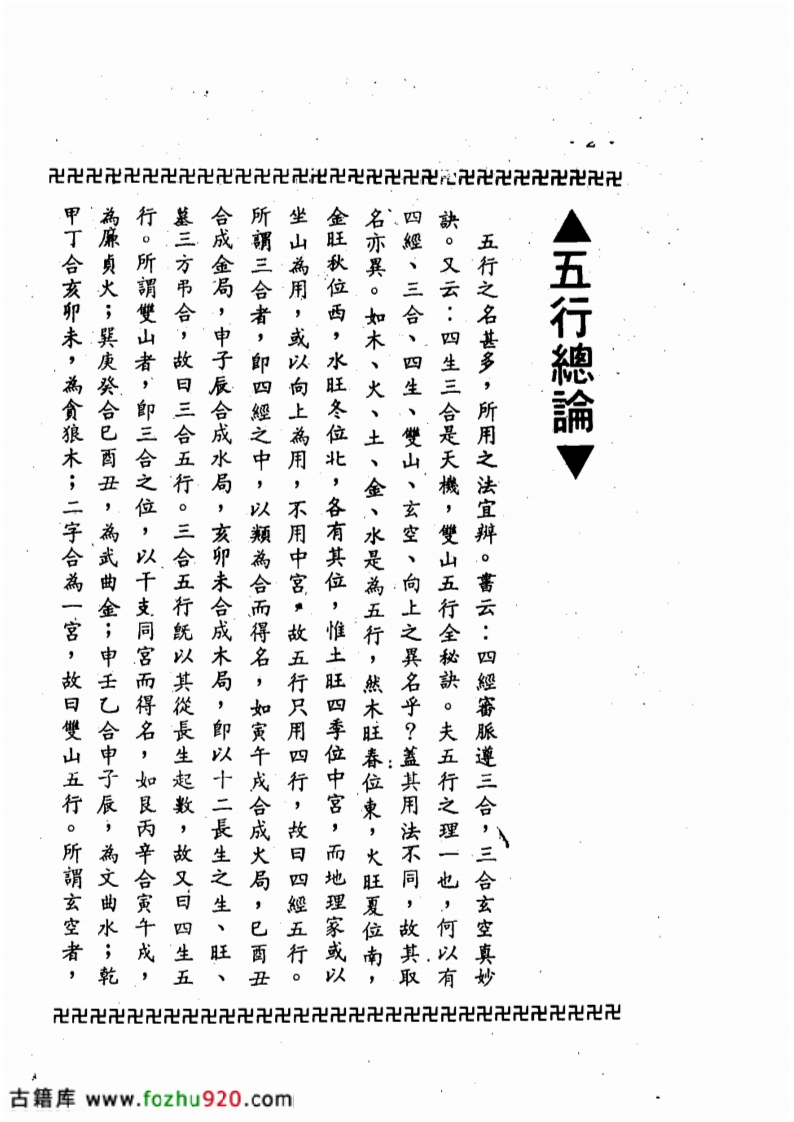 - 2 -
▲五行總論▼
五行之名甚多，所用之法宜辨。書云：四經審脈遵三合，三合玄空真妙
訣。又云：四生三合是天機，雙山五行全秘訣。夫五行之理一也，何以有
四經、三合、四生、雙山、玄空、向上之異名乎？蓋其用法不同，故其取
名亦異。如木、火、土、金、水是為五行，然木旺春位東，火旺夏位南，
金旺秋位西，水旺冬位北，各有其位，惟土旺四季位中宮，而地理家或以
坐山為用，或以向上為用，不用中宮，故五行只用四行，故曰四經五行。
所謂三合者，即四經之中，以類為合而得名，如寅午戌合成火局，巳酉丑
合成金局，申子辰合成水局，亥卯未合成木局，即以十二長生之生、旺、
墓三方弔合，故曰三合五行。三合五行既以其從長生起數，故又曰四生五
行。所謂雙山者，即三合之位，以干支同宮而得名，如艮丙辛合寅午戌，
為廉貞火；巽庚癸合巳酉丑，為武曲金；申壬乙合申子辰，為文曲水；乾
甲丁合亥卯未，為貪狼木；二字合為一宮，故曰雙山五行。所謂玄空者，
古籍库 www.fozhu920.com